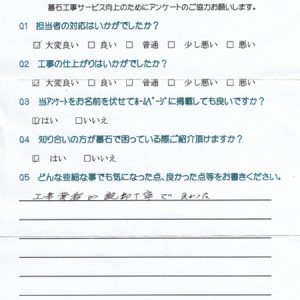 墓石工事サービス向上のためにアンケートのご協力お願いします。
Q1 担当者の対応はいかがでしたか?
☑ 大変良い □ 良い □ 普通 □ 少し悪い □ 悪い
Q2 工事の仕上がりはいかがでしたか?
☑ 大変良い □ 良い □ 普通 □ 少し悪い □ 悪い
Q3 当アンケートをお名前を伏せてホームページに掲載しても良いですか?
☑ はい □ いいえ
Q4 知り合いの方が墓石で困っている際ご紹介頂けますか?
☑ はい □ いいえ
Q5 どんな些細な事でも気になった点、良かった点等をお書きください。
工事業者が親切丁寧で良かった